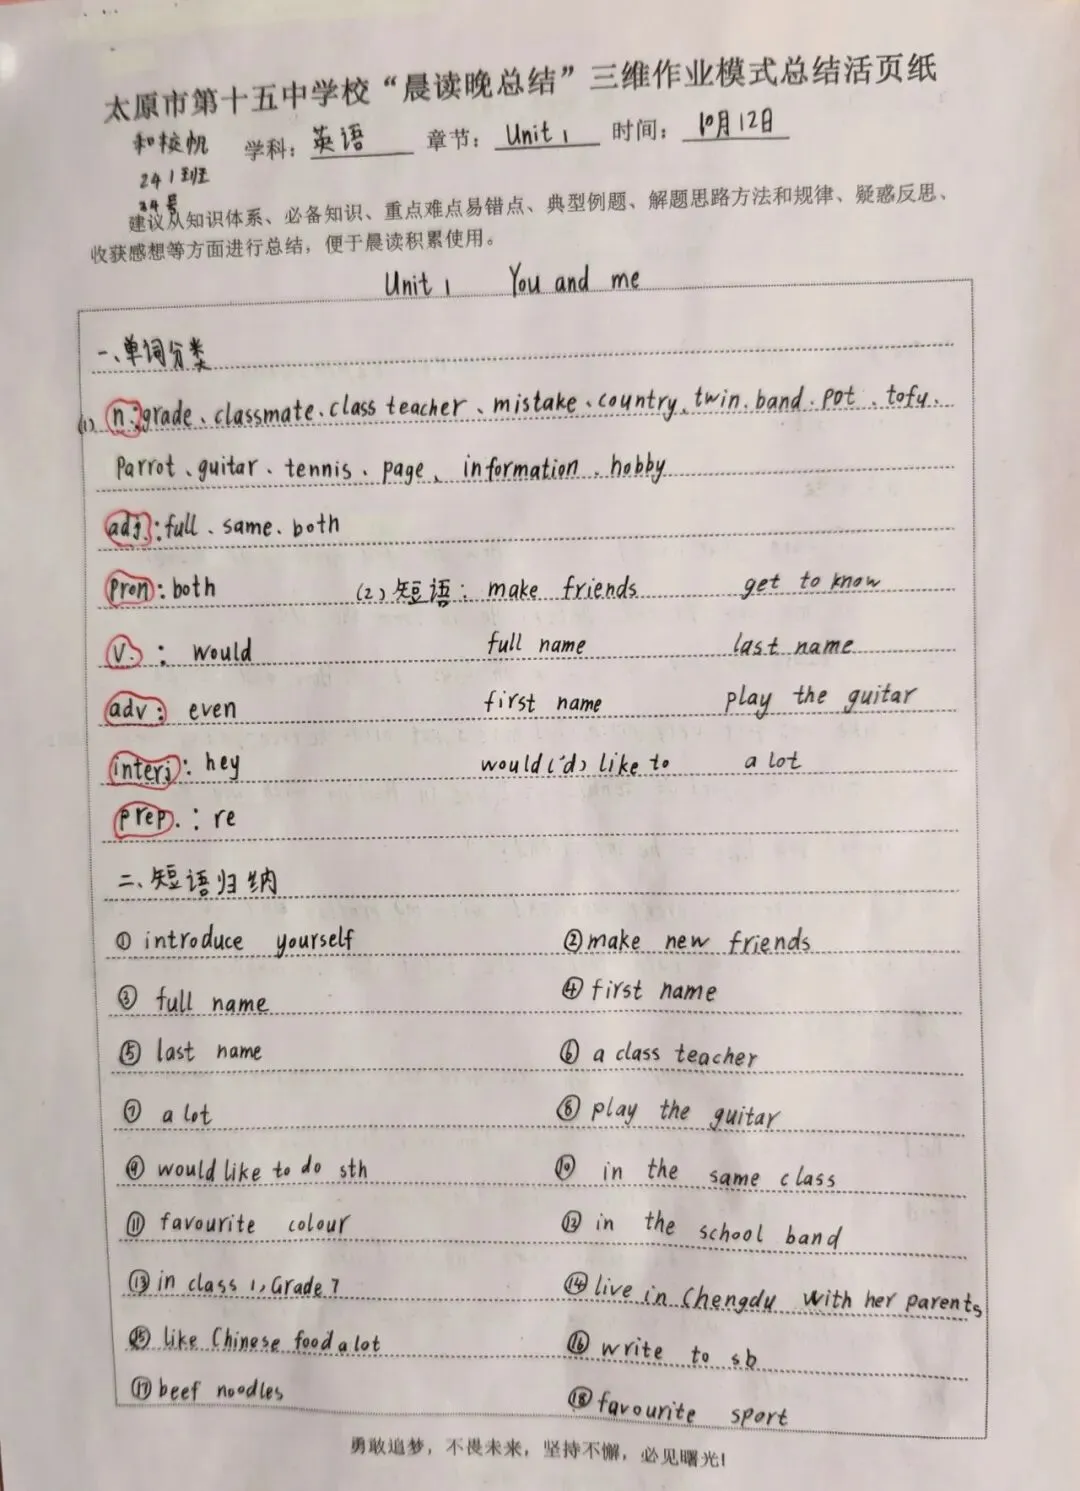 太原市第十五中学校“晨读晚总结”三维作业模式总结活页纸
学科：英语 章节：Unit 1 时间：10月12日
241班
34号
建议从知识体系、必备知识、重点难点易错点、典型例题、解题思路方法和规律、疑惑反思、
收获感想等方面进行总结，便于晨读积累使用。
Unit 1 You and me
一、单词分类
(1) n.:grade、classmate、class teacher、mistake、country、twin、band、pot、tofu、
Parrot、guitar、tennis、page、information、hobby
adj.:full、same、both
pron:both (2)短语：make friends get to know
v.: would full name last name
adv: even first name play the guitar
interj: hey would('d) like to a lot
prep.: re
二、短语归纳
① introduce yourself ②make new friends
③ full name ④first name
⑤ last name ⑥ a class teacher
⑦ a lot ⑧ play the guitar
⑨ would like to do sth ⑩ in the same class
⑪ favourite colour ⑫ in the school band
⑬in class 1, Grade 7 ⑭live in Chengdu with her parents
⑮ like Chinese food a lot ⑯ write to sb
⑰beef noodles ⑱favourite sport
勇敢追梦，不畏未来，坚持不懈，必见曙光！